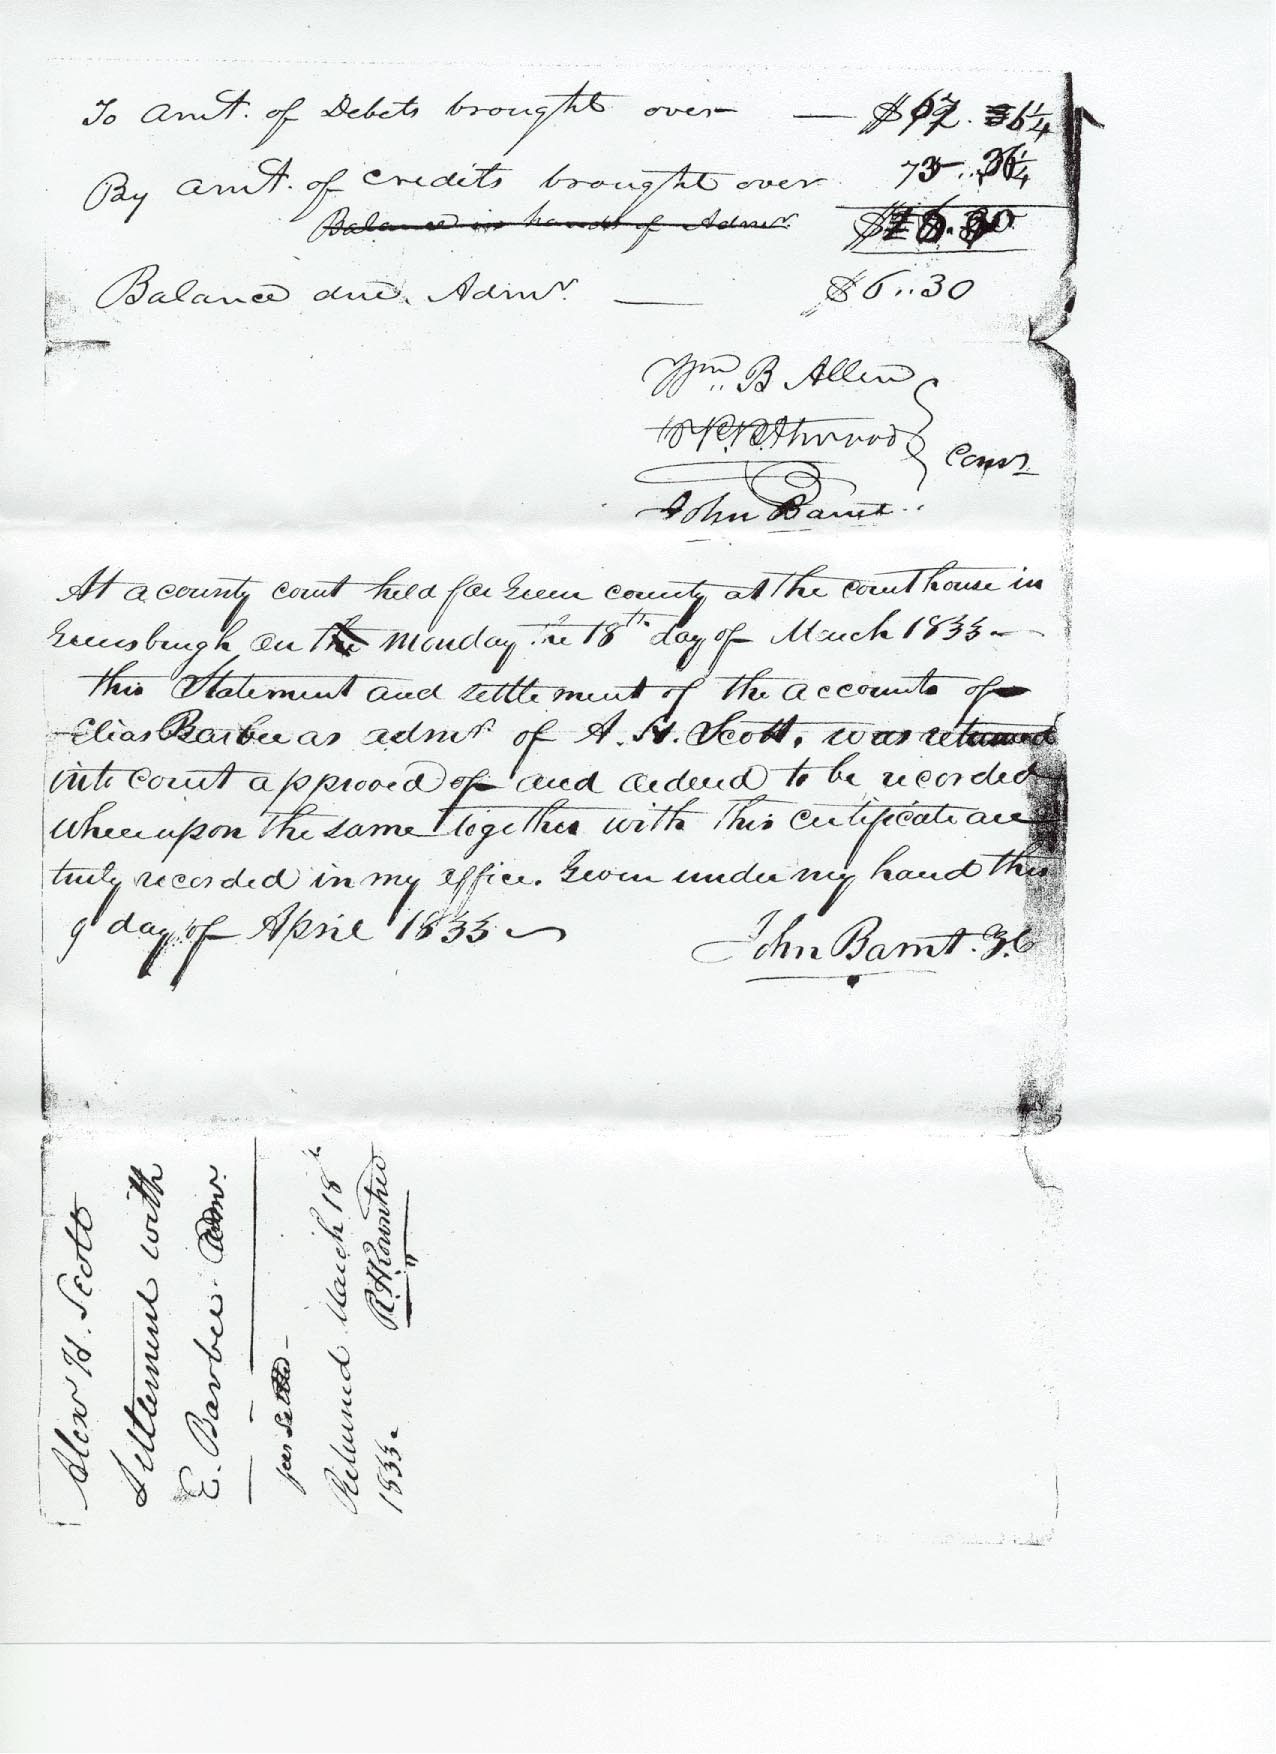 To amt. of Debets brought over — $67. 6¼
By amt. of credits brought over 73..36¼
Balance in hands of Admr.
Balance due Admr. — $6..30
Wm. B Allen
Atwood
Coms
John Barret
At a county court held for Green county at the courthouse in
Greensburgh on the Monday the 18th day of March 1833
this Statement and settlement of the accounts of
Elias Barbee as admr of A. H. Scott, was returned
into court approved of and ordered to be recorded
whereupon the same together with this certificate are
truly recorded in my office. Given under my hand this
9 day of April 1833
John Barret. G.C
Alexr H. Scott
Settlement with
E. Barbee Admr.
Returned March 18th
1833.